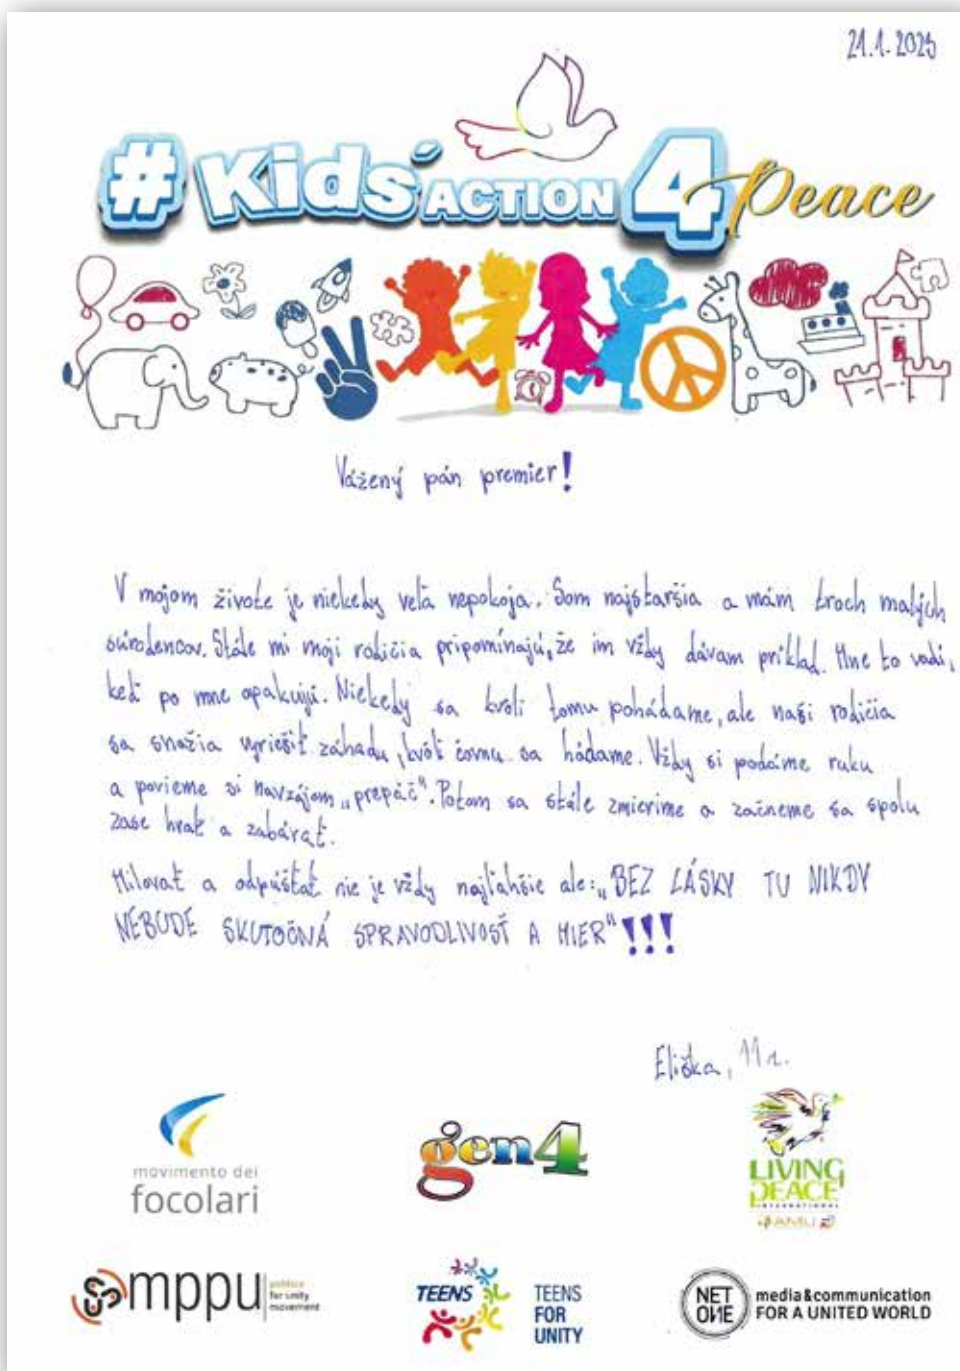 21.1.2025
# Kids' ACTION 4 Peace
Vážený pán premier!
V mojom živote je niekedy veľa nepokoja. Som najstaršia a mám troch malých
súrodencov. Stále mi moji rodičia pripomínajú, že im vždy dávam príklad. Mne to vadí,
keď po mne opakujú. Niekedy sa kvôli tomu pohádame, ale naši rodičia
sa snažia vyriešiť záhadu, kvôli čomu sa hádame. Vždy si podáme ruku
a povieme si navzájom „prepáč". Potom sa stále zmierime a začneme sa spolu
zase hrať a zabávať.
Milovať a odpúšťať nie je vždy najľahšie ale: „BEZ LÁSKY TU NIKDY
NEBUDE SKUTOČNÁ SPRAVODLIVOSŤ A MIER" !!!
Eliška, 11 r.
movimento dei
focolari
gen4
LIVING
PEACE
INTERNATIONAL
AMU
mppu
politics
for unity
movement
TEENS
TEENS
FOR
UNITY
NET
ONE
media&communication
FOR A UNITED WORLD